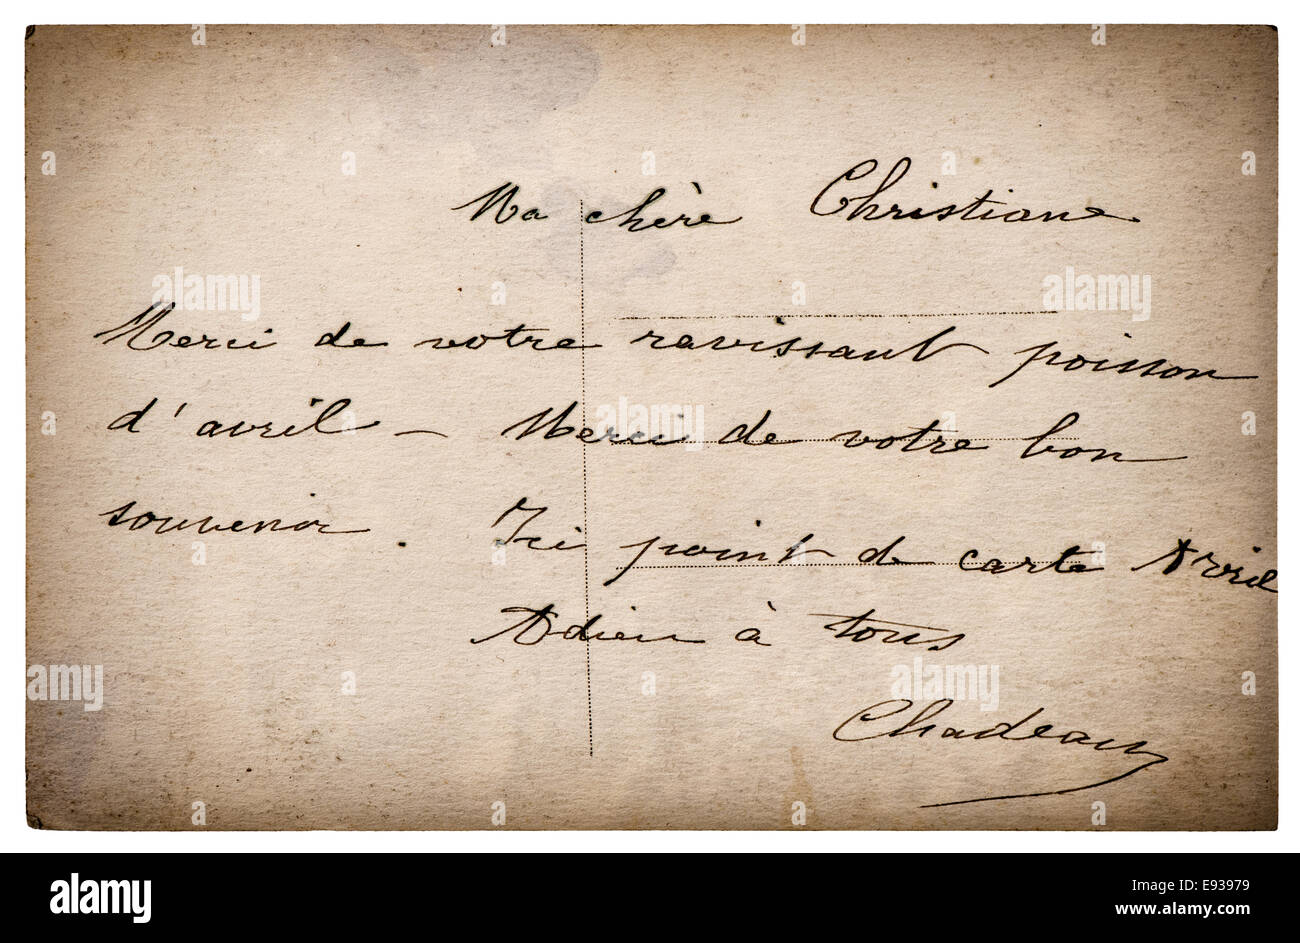 Ma chère Christiane
Merci de votre ravissant poisson
d'avril – Merci de votre bon
souvenir. Ici point de carte Avril
Adieu à tous
Chadeau
alamy
Image ID: E93979
www.alamy.com